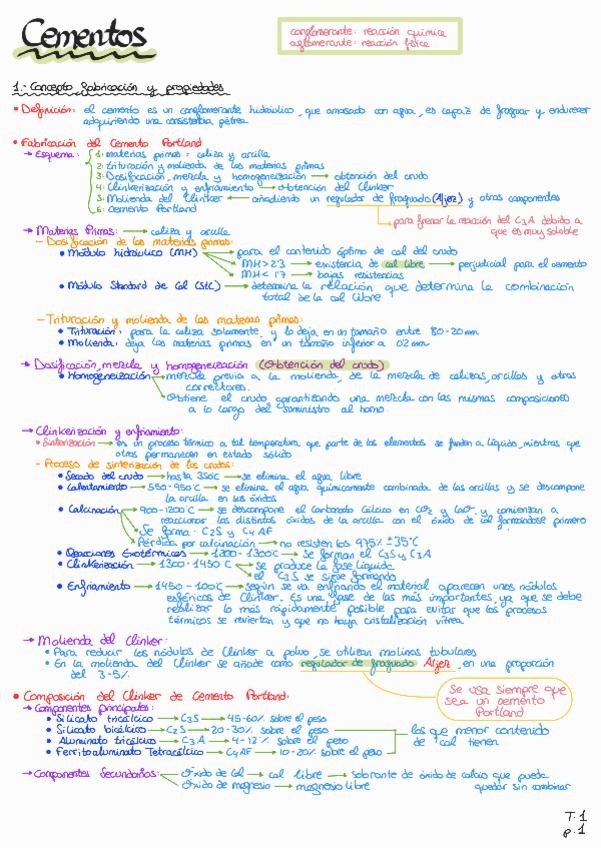 Cementos
conglomerante: reacción química
aglomerante: reacción física
1.- Concepto fabricación y propiedades
• Definición: el cemento es un conglomerante hidráulico, que amasado con agua, es capaz de fraguar y endurecer
adquiriendo una consistencia pétrea
• Fabricación del Cemento Portland
→ Esquema: 1. materias primas = caliza y arcilla
2. Trituración y molienda de las materias primas
3. Dosificación, mezcla y homogeneización → obtención del crudo
4. Clinkerización y enfriamiento → obtención del Clinker
5. Molienda del Clinker ← añadiendo un regulador de fraguado (Aljez) y otras componentes
6. Cemento Portland
para frenar la reacción del C3A debido a
que es muy soluble
→ Materias Primas: → caliza y arcilla
- Dosificación de las materias primas:
• Módulo hidráulico (MH) → para el contenido óptimo de cal del crudo
MH > 2'3 → existencia de cal libre → perjudicial para el cemento
MH < 1'7 → bajas resistencias
• Módulo Standard de Cal (StC) → determina la relación que determina la combinación
total de la cal libre
- Trituración y molienda de las materias primas:
• Trituración: para la caliza solamente, y lo deja en un tamaño entre 80-20mm
• Molienda: deja las materias primas en un tamaño inferior a 0'2 mm
→ Dosificación, mezcla y homogeneización (Obtención del crudo)
• Homogeneización → mezcla previa a la molienda, de la mezcla de calizas, arcillas y otras
correctores.
Obtiene el crudo garantizando una mezcla con las mismas composiciones
a lo largo del suministro al horno.
→ Clinkerización y enfriamiento:
• Sinterización → es un proceso térmico a tal temperatura que parte de los elementos se funden a líquido, mientras que
otras permanecen en estado sólido
- Proceso de sinterización de los crudos:
• Secado del crudo → hasta 350C → se elimina el agua libre
• Calentamiento → 550-950C → se elimina el agua químicamente combinada de las arcillas y se descompone
la arcilla en sus óxidos
• Calcinación → 900-1200C → se descompone el Carbonato Cálcico en CO2 y CaO. y comienzan a
reaccionar los distintos óxidos de la arcilla con el óxido de cal formándose primero
Se forma: C2S y C4AF
Pérdida por calcinación → no resisten los 975% ± 35°C
• Reacciones Exotérmicas → 1200-1300C → se forman el C3S y C3A
• Clinkerización → 1300-1450C → se produce la fase líquida
el C3S se sigue formando
• Enfriamiento → 1450-100C → según se va enfriando el material aparecen unos nódulos
esféricos de Clinker. Es una fase de las más importantes ya que se debe
realizar lo más rápidamente posible para evitar que los procesos
térmicos se reviertan y que no haya cristalización vítrea
→ Molienda del Clinker:
• Para reducir los nódulos de Clinker a polvo, se utilizan molinos tubulares
• En la molienda del Clinker se añade como regulador de fraguado Aljez, en una proporción
del 3-5%.
Se usa siempre que
sea un cemento
Portland
• Composición del Clinker de Cemento Portland:
→ Componentes principales:
• Silicato tricálcico → C3S → 45-60% sobre el peso
• Silicato bicálcico → C2S → 20-30% sobre el peso
• Aluminato tricálcico → C3A → 4-12% sobre el peso
• Ferritoaluminato Tetracálcico → C4AF → 10-20% sobre el peso
los que menor contenido
de cal tienen
→ Componentes Secundarios: Óxido de Cal → cal libre → sobrante de óxido de calcio que puede
quedar sin combinar
Óxido de magnesio → magnesio libre
T.1
p.1